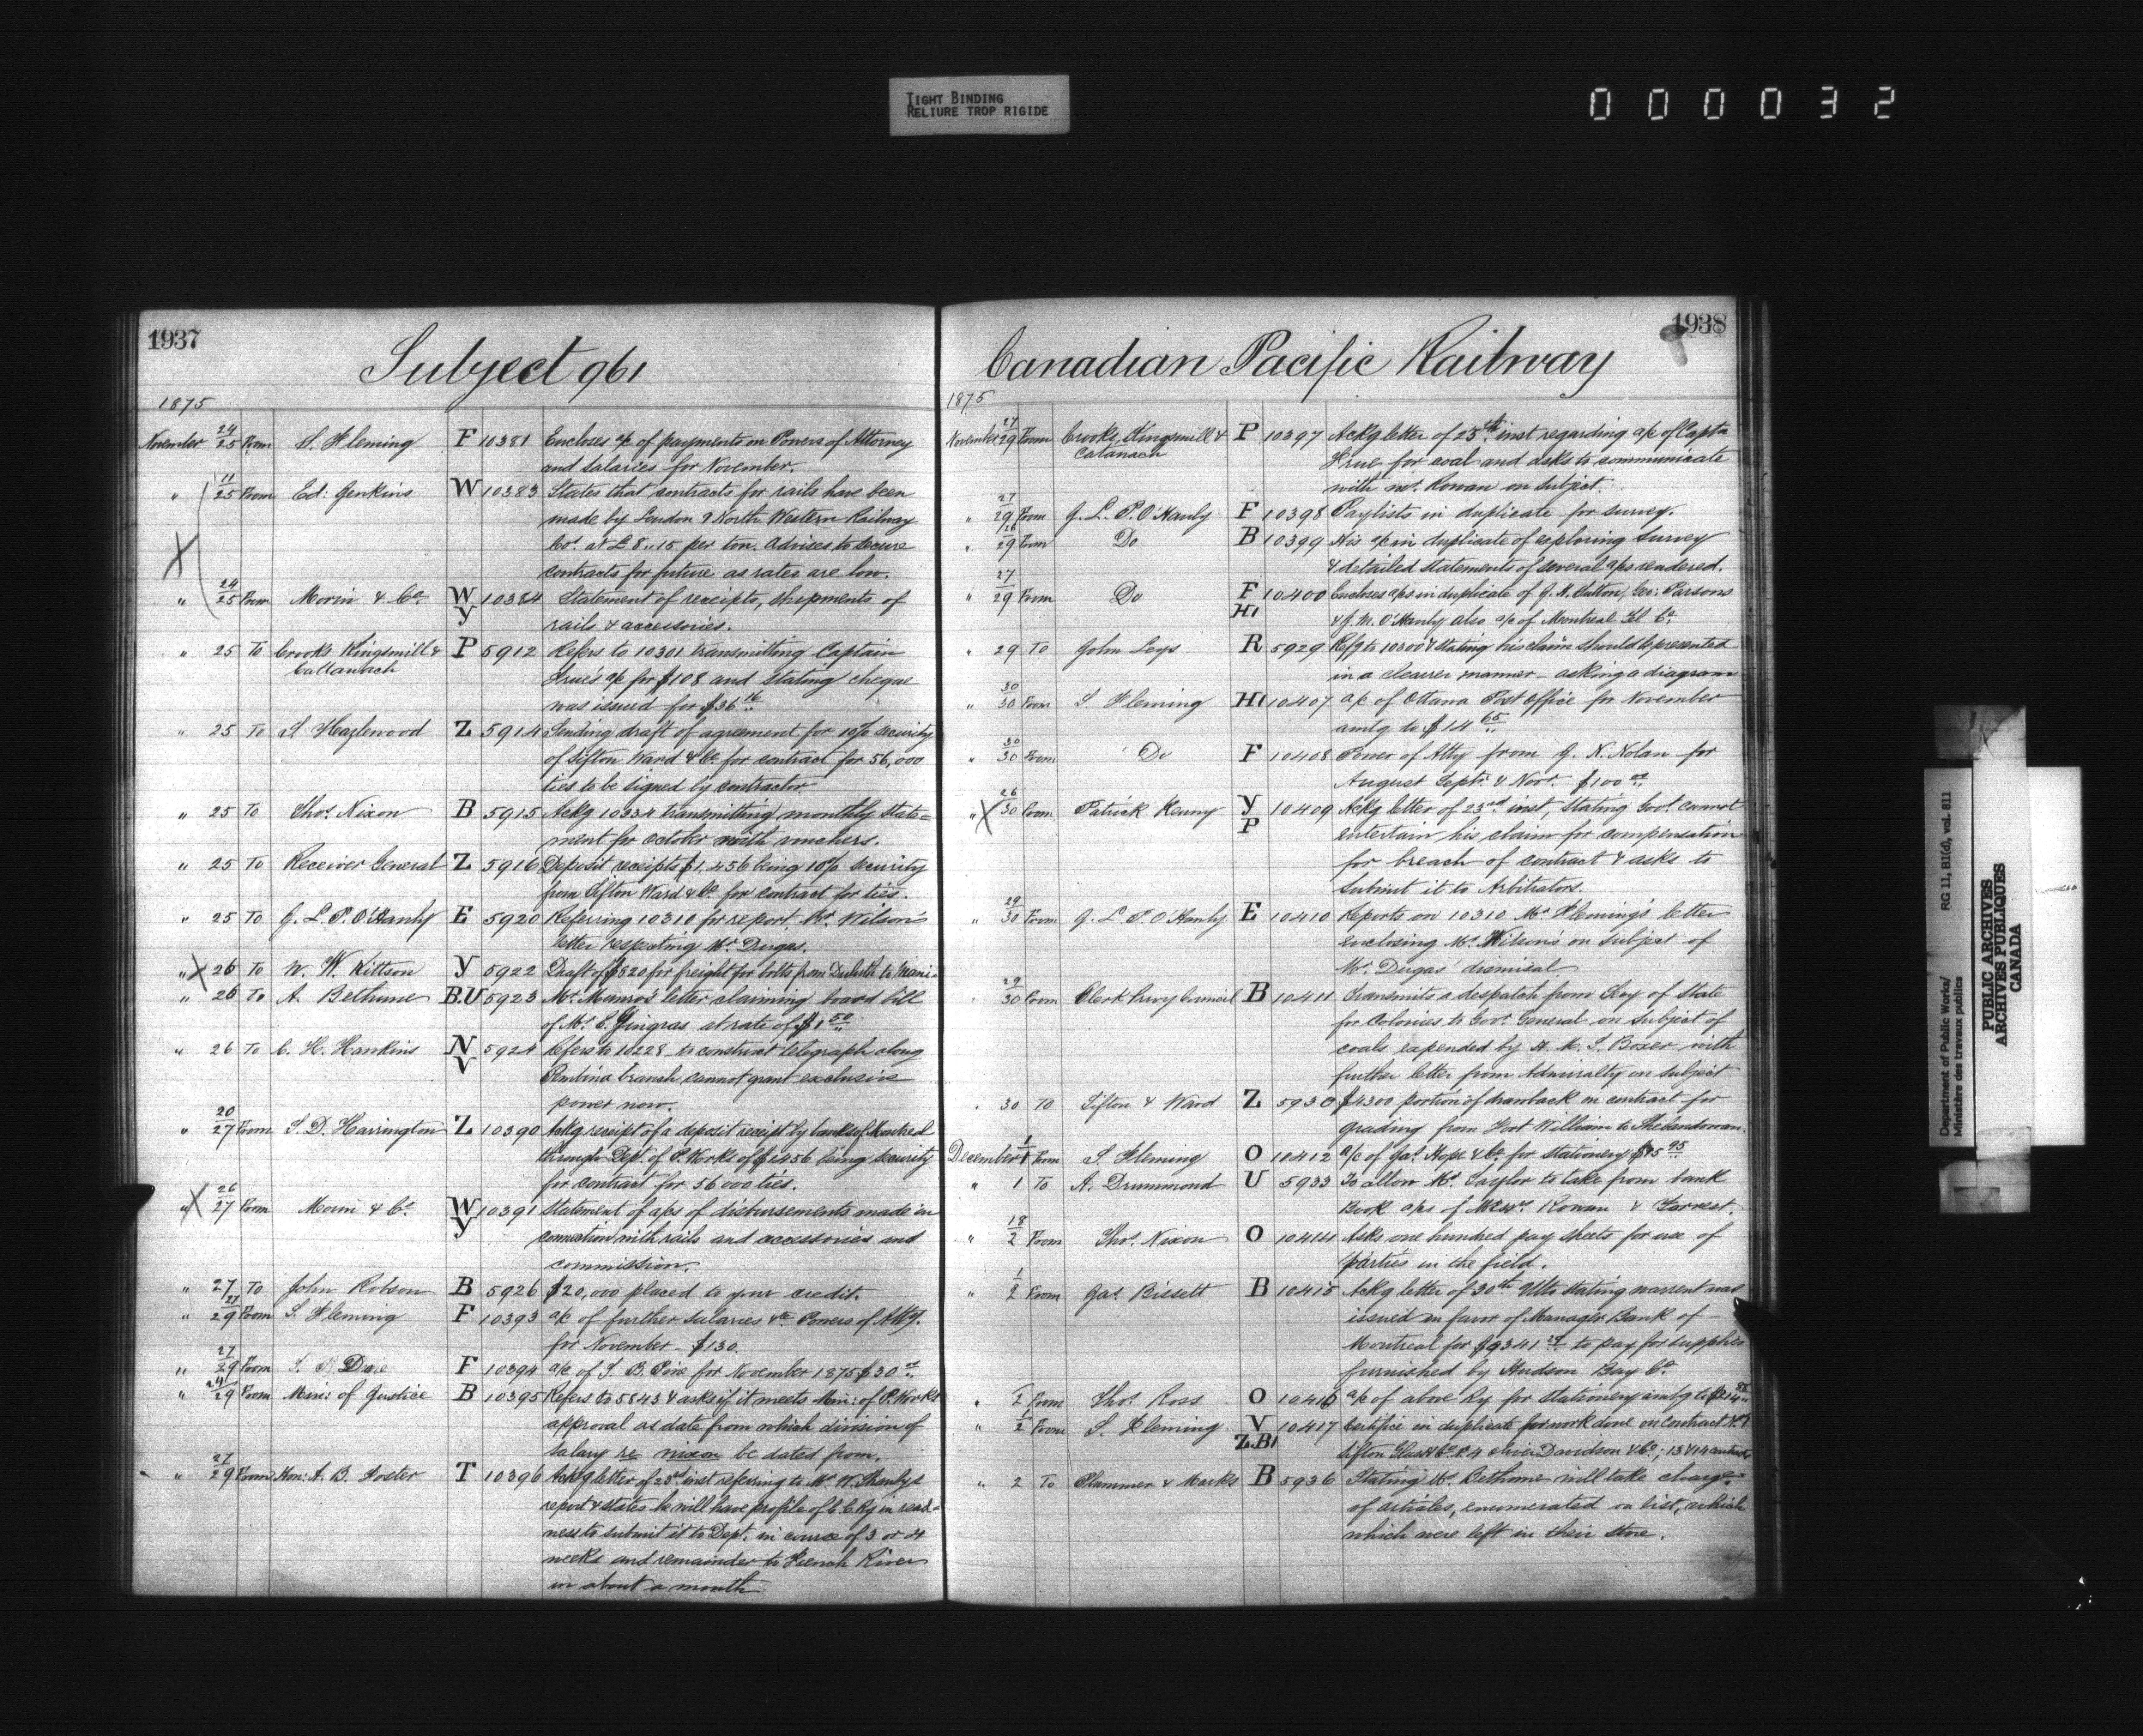 TIGHT BINDING
RELIURE TROP RIGIDE
000032
1937
Subject 961
1875
November 24/25 From S. Fleming F 10381 Encloses a/c of payments on Powers of Attorney
and salaries for November.
" 11/25 From Ed: Jenkins W 10383 States that contracts for rails have been
made by London & North Western Railway
Cos. at £8,,15 per ton. Advises to secure
contracts for future as rates are low.
" 24/25 From Morin & Co. W Y 10384 Statement of receipts, shipments of
rails & accessories.
" 25 To Crooks Kingsmill & P 5912 Refers to 10301 transmitting Captain
Cattanach
a/c for $108 and stating cheque
was issued for $36 16
" 25 To S. Hazlewood Z 5914 Sending draft of agreement for 10% security
of Sifton Ward & Co. for contract for 56,000
ties to be signed by contractor
" 25 To Thos. Nixon B 5915 Ackg 10334 transmitting monthly state=
ment for October with vouchers.
" 25 To Receiver General Z 5916 Deposit receipts $1,456 being 10% security
from Sifton Ward & Co. for contract for ties.
" 25 To J. L. P. O'Hanly E 5920 Referring 10310 for report, Mr. Wilson's
letter respecting Mr. Dugas.
" X 26 To N. W. Kittson Y 5922 Draft of $820 for freight for bolts from Duluth to
" 26 To A. Bethune B.U 5923 Mr. Munro's letter claiming board bill
of Mr. E. Gingras at rate of $1 50
" 26 To C. H. Hankins N V 5924 Refers to 10228 to construct telegraph along
Pembina branch cannot grant exclusive
power now.
" 20/27 From S. D. Harrington Z 10390 Ackg receipt of a deposit receipt by bank of Montreal
through Dept. of P. Works of $1456 being security
for contract for 56000 ties.
X 26/27 From Morin & Co. W Y 10391 Statement of a/cs of disbursements made in
connection with rails and accessories and
commission.
" 27 To John Robson B 5926 $20,000 placed to your credit.
" 27/29 From S. Fleming F 10393 a/c of further salaries &c Powers of Atty.
for November - $130.
" 27/29 From F 10394 a/c of for November 1875 $30
" 24/29 From Min: of Justice B 10395 Refers to 5843 & asks if it meets Min: of P. Works
approval as date from which division of
salary re Nixon be dated from.
" 27/29 From Hon: A. B. Foster T 10396 Ackg letter of 23rd inst referring to Mr. W. Shanly's
report & states he will have profile of C. C. Ry in readi=
ness to submit it to Dept. in course of 3 or 4
weeks and remainder to French River
in about a month
1938
Canadian Pacific Railway
1875
November 27/29 From Crooks, Kingsmill & P 10397 Ackg letter of 25th inst regarding a/c of Captn
Catanach
for coal and asks to communicate
with Mr. Rowan on subject.
" 27/29 From J. L. P. O'Hanly F 10398 Paylists in duplicate for survey.
" 26/29 From Do B 10399 His a/c in duplicate of exploring survey
& detailed statements of several a/cs rendered.
" 27/29 From Do F H1 10400 Encloses a/cs in duplicate of G. H. Sutton, Geo: Parsons
& J. M. O'Hanly also a/c of Montreal Tel Co.
" 29 To John Leys R 5929 stating his claim should be presented
in a clearer manner - asking a diagram
" 30/30 From S. Fleming H1 10407 a/c of Ottawa Post Office for November
amtg to $14 65
" 30/30 From Do F 10408 Power of Atty from J. N. Nolan for
August Septr. & Novr. $100
" X 26/30 From Patrick Kenny Y P 10409 Ackg letter of 23rd inst, stating Govt. cannot
entertain his claim for compensation
for breach of contract & asks to
submit it to Arbitrators.
29/30 From J. L. P. O'Hanly E 10410 Reports on 10310 Mr. Fleming's letter
enclosing Mr. Wilson's on subject of
Mr. Dugas' dismissal.
29/30 From Clerk Privy Council B 10411 Transmits a despatch from Secy of State
for Colonies to Govr. General on subject of
coals expended by H. M. S. Boxer with
further letter from Admiralty on subject
30 To Sifton & Ward Z 5930 $4300 portion of drawback on contract for
grading from Fort William to Shebandowan.
December 1/1 From S. Fleming O 10412 a/c of Jas. Hope & Co. for stationery $95
" 1 To A. Drummond U 5933 To allow Mr. Taylor to take from bank
Book a/cs of Messrs. Rowan & Forrest.
" 18/2 From Thos. Nixon O 10414 Asks one hundred pay sheets for use of
parties in the field.
" 1/2 From Jas. Bissett B 10415 Ackg letter of 30th Ulto stating warrent was
issued in favor of Manager Bank of
Montreal for $9341 to pay for supplies
furnished by Hudson Bay Co.
" 2 From Thos. Ross O 10416 a/c of above Ry for stationery amtg to
" 1/2 From S. Fleming V Z.B1 10417 Certifice in duplicate for work done on contract No. 1
Sifton Glass & Co. No. 4 Oliver Davidson & Co.; 13 & 14 contracts
" 2 To Plummer & Marks B 5936 Stating Mr. Bethune will take charge
of articles, enumerated on list, which
which were left in their store.
Department of Public Works/
Ministère des travaux publics
RG 11, B1(d), vol. 811
PUBLIC ARCHIVES
ARCHIVES PUBLIQUES
CANADA